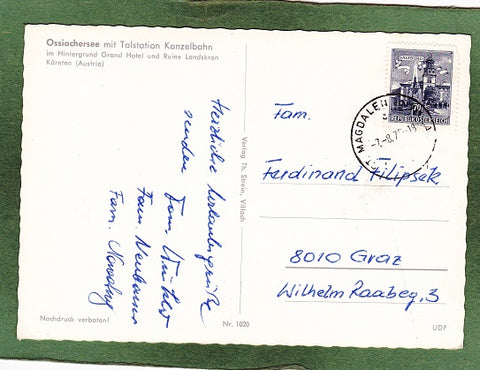 Ossiachersee mit Talstation Kanzelbahn
im Hintergrund Grand Hotel und Ruine Landskron
Kärnten (Austria)
Herzliche Urlaubsgrüße
senden Fam. Winkler
Fam. Neubauer
Fam. Nowotny
Nachdruck verboten!
Verlag Th. Strein, Villach
Nr. 1020
REPUBLIK ÖSTERREICH
MAGDALEN
Fam.
Ferdinand Filipsek
8010 Graz
Wilhelm Raabeg. 3
UDP